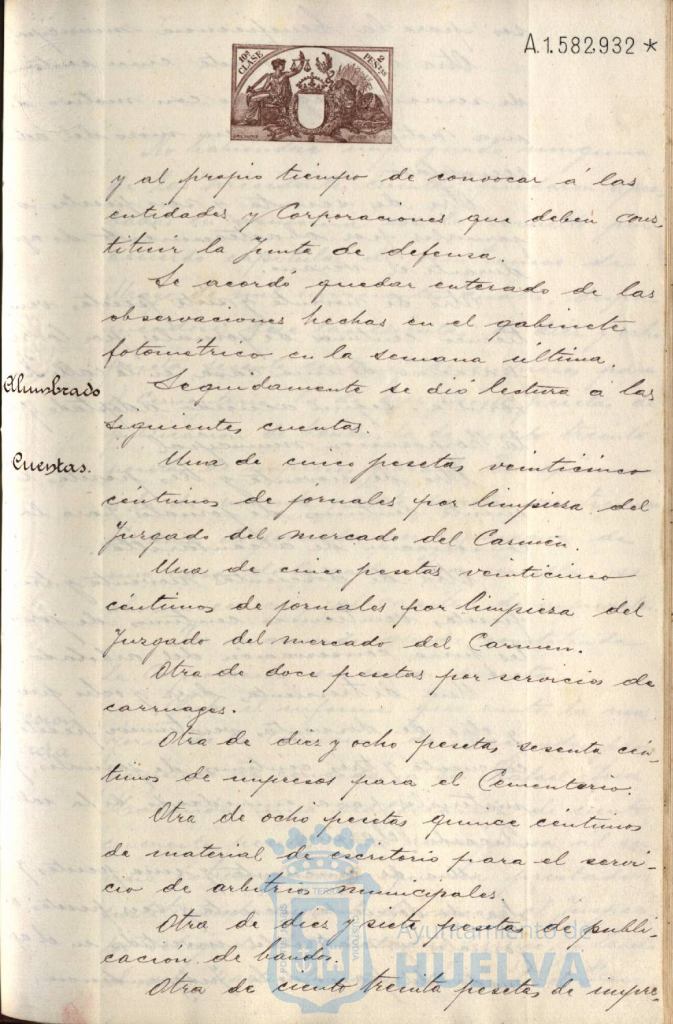 A.1.582.932 *
10ª CLASE
2 PESETAS
y al propio tiempo de convocar á las
entidades y Corporaciones que deben cons-
tituir la Junta de defensa.
Se acordó quedar enterado de las
observaciones hechas en el gabinete
fotométrico en la semana última.
Alumbrado
Seguidamente se dió lectura á las
siguientes cuentas.
Cuentas.
Una de cinco pesetas veinticinco
céntimos de jornales por limpieza del
Juzgado del mercado del Carmen.
Una de cinco pesetas veinticinco
céntimos de jornales por limpieza del
Juzgado del mercado del Carmen.
Otra de doce pesetas por servicios de
carruages.
Otra de diez y ocho pesetas sesenta cén-
timos de impresos para el Cementerio.
Otra de ocho pesetas quince céntimos
de material de escritorio para el servi-
cio de arbitrios municipales.
Otra de diez y siete pesetas de publi-
cación de bandos.
Otra de ciento treinta pesetas de impre-
Ayuntamiento de
HUELVA